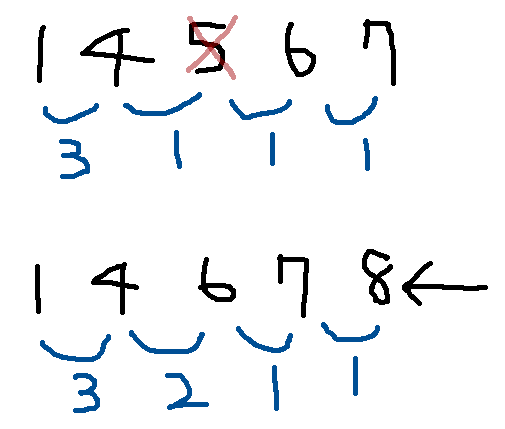 1 4 5 6 7
3 1 1 1
1 4 6 7 8
3 2 1 1